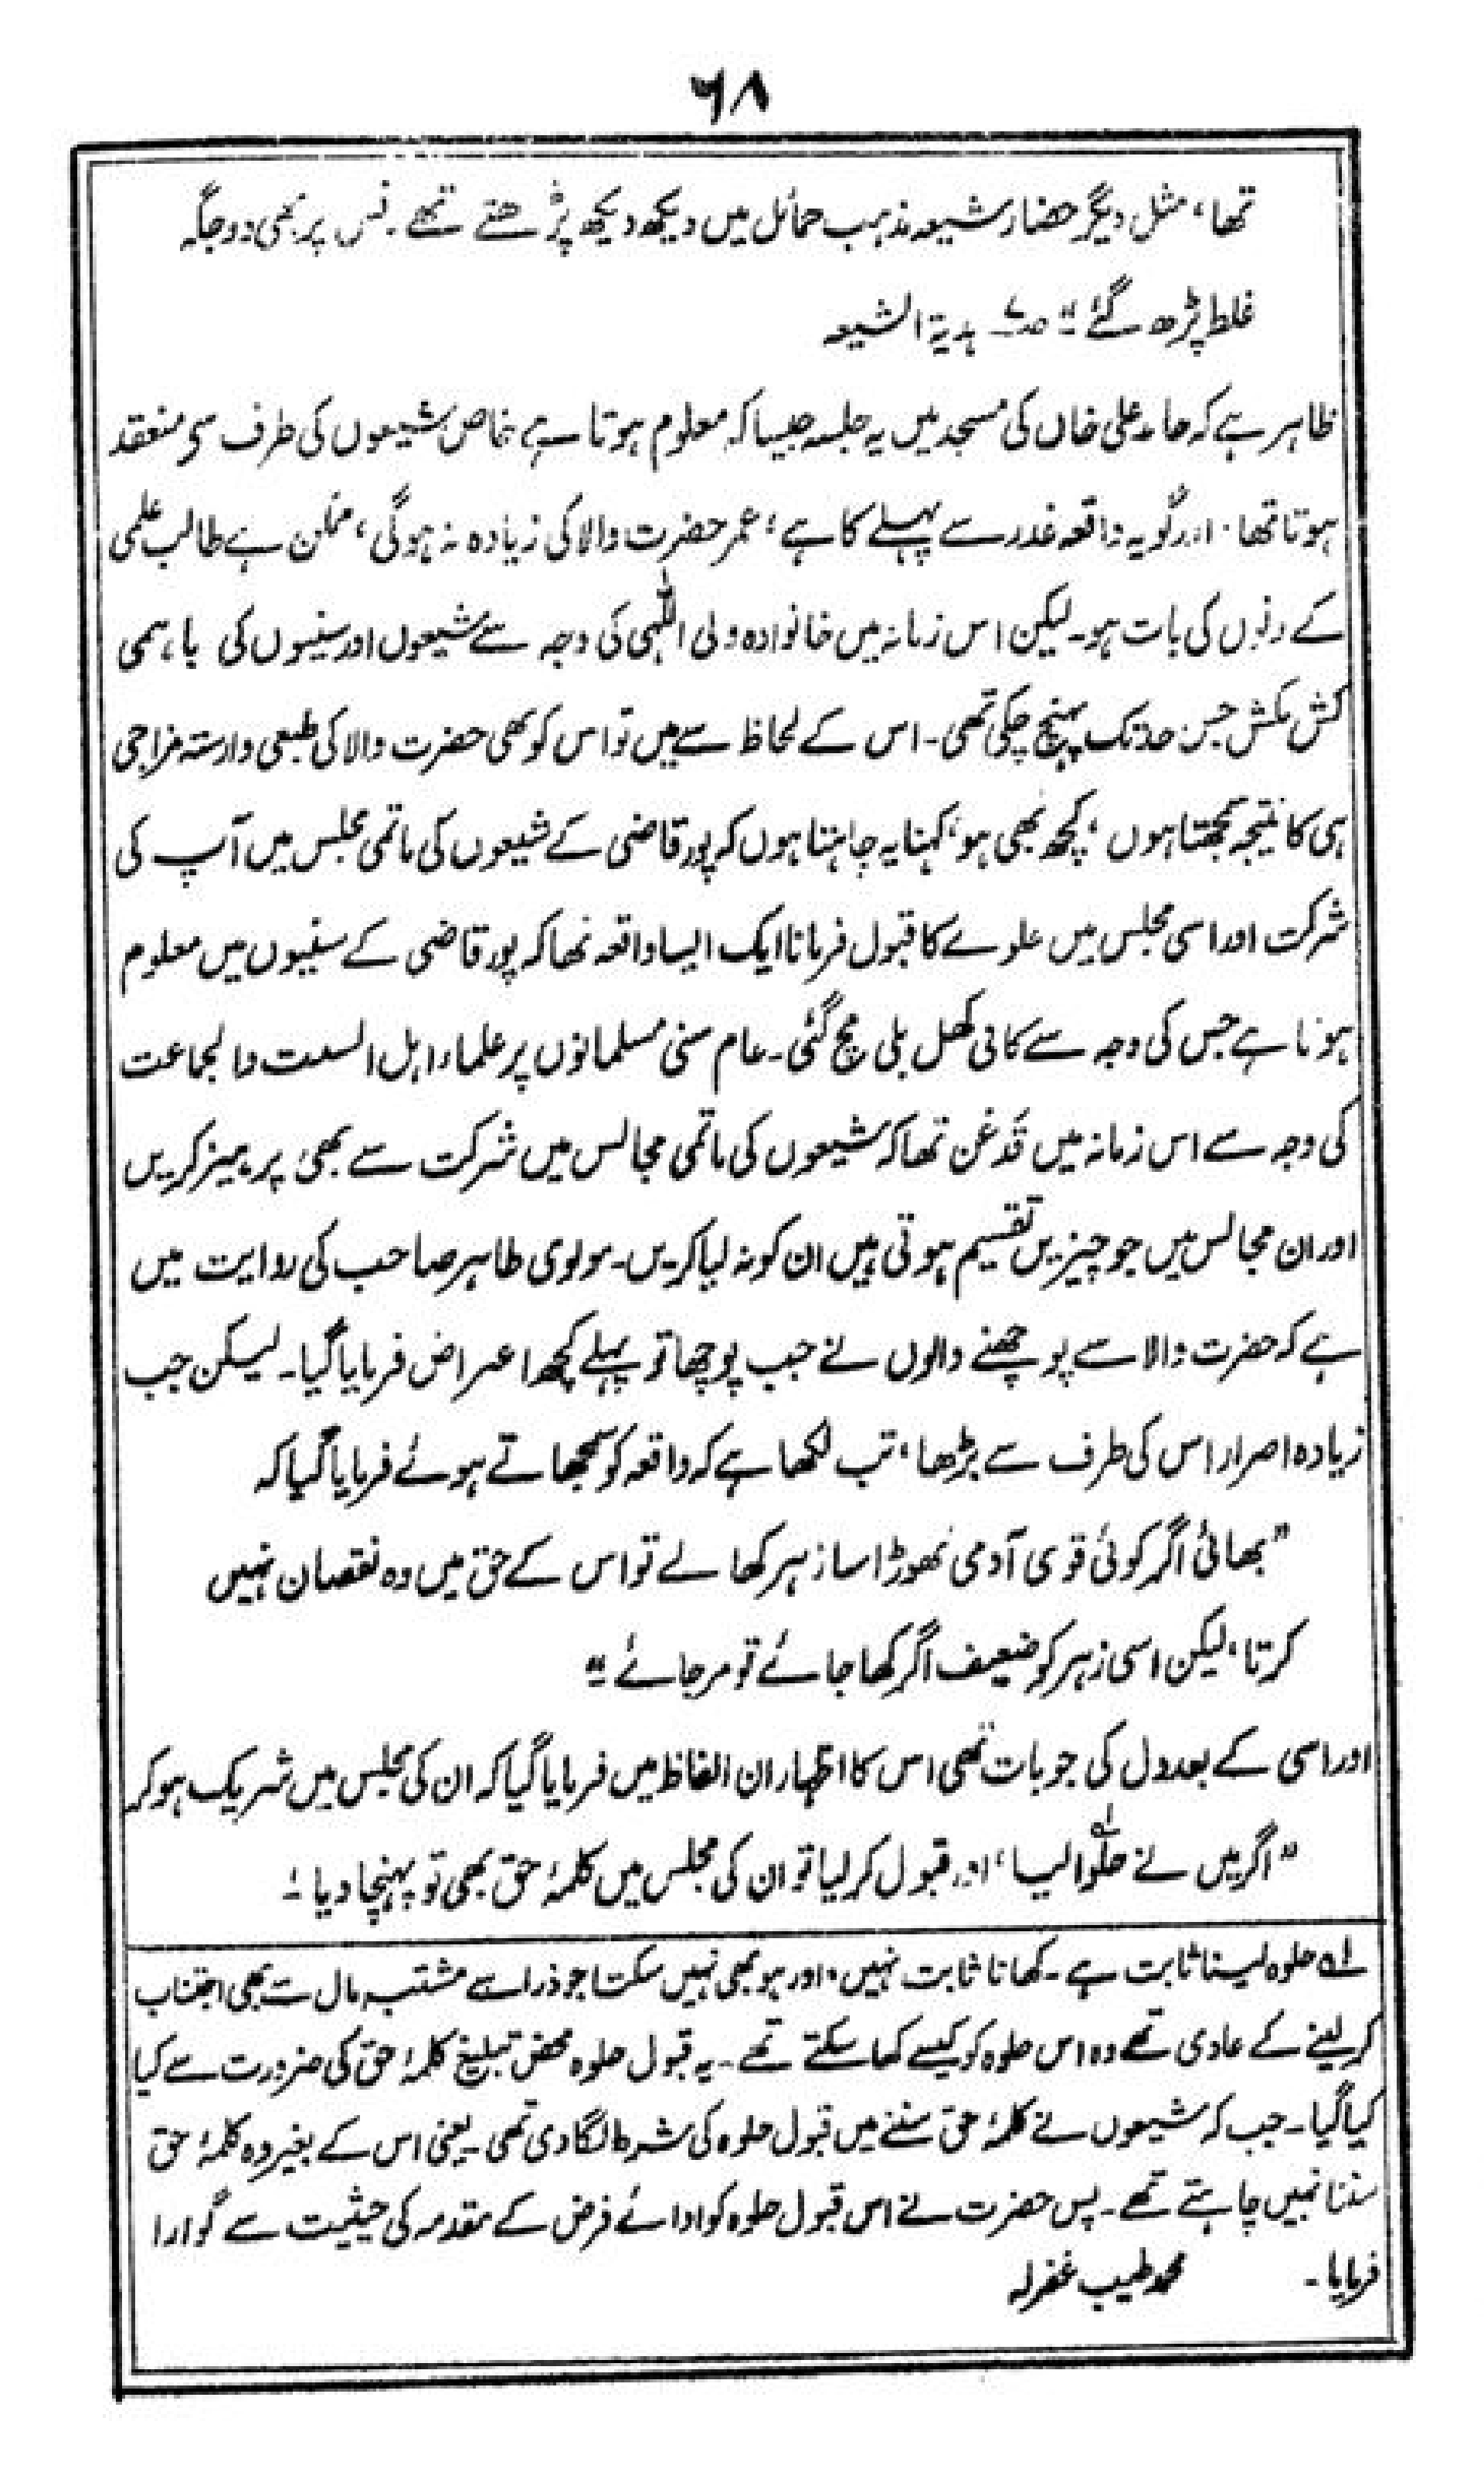 ٦٨
تھا، مثل دیگر حضار شیعہ مذہب حمائل میں دیکھ دیکھ پڑھتے تھے۔ پر بھی دوجگہ
غلط پڑھ گئے" ہدیۃ الشیعہ
ظاہر ہے کہ حامد علی خاں کی مسجد میں یہ جلسہ جیسا کہ معلوم ہوتا ہے خاص شیعوں کی طرف سی منعقد
ہوتا تھا۔ اور گو یہ واقعہ غدر سے پہلے کا ہے، عمر حضرت والا کی زیادہ نہ ہوگی، ممکن ہے طالب علمی
کے دنوں کی بات ہو۔ لیکن اس زمانہ میں خانوادہ ولی اللّٰہی کی وجہ سے شیعوں اور سنیوں کی باہمی
کش مکش جس حد تک پہنچ چکی تھی۔ اس کے لحاظ سے میں تو اس کو بھی حضرت والا کی طبعی وارستہ مزاجی
ہی کا نتیجہ سمجھتا ہوں، کچھ بھی ہو، کہنا یہ چاہتا ہوں کہ پور قاضی کے شیعوں کی ماتمی مجلس میں آپ کی
شرکت اور اسی مجلس میں حلوے کا قبول فرمانا ایک ایسا واقعہ تھا کہ پور قاضی کے سنیوں میں معلوم
ہوتا ہے جس کی وجہ سے کافی کھل بلی مچ گئی۔ عام سنی مسلمانوں پر علماء اہل السنت والجماعت
کی وجہ سے اس زمانہ میں قدغن تھا کہ شیعوں کی ماتمی مجالس میں شرکت سے بھی پرہیز کریں
اور ان مجالس میں جو چیزیں تقسیم ہوتی ہیں ان کو نہ لیا کریں۔ مولوی طاہر صاحب کی روایت میں
ہے کہ حضرت والا سے پوچھنے والوں نے جب پوچھا تو پہلے کچھ اعراض فرمایا گیا۔ لیکن جب
زیادہ اصرار اس کی طرف سے بڑھا، تب لکھا ہے کہ واقعہ کو سمجھاتے ہوئے فرمایا گیا کہ
"بھائی اگر کوئی قوی آدمی تھوڑا سا زہر کھا لے تو اس کے حق میں وہ نقصان نہیں
کرتا، لیکن اسی زہر کو ضعیف اگر کھا جائے تو مر جائے"
اور اسی کے بعد دل کی جو بات تھی اس کا اظہار ان الفاظ میں فرمایا گیا کہ ان کی مجلس میں شریک ہو کر
"اگر میں نے حلوا لیا، اور قبول کر لیا تو ان کی مجلس میں کلمۂ حق بھی تو پہنچا دیا۔
لہ حلوہ لینا ثابت ہے۔ کھانا ثابت نہیں، اور ہو بھی نہیں سکتا جو ذرا سے مشتبہ مال سے بھی اجتناب
کر لینے کے عادی تھے وہ اس حلوہ کو کیسے کھا سکتے تھے۔ یہ قبول حلوہ محض تبلیغ کلمۂ حق کی ضرورت سے کیا
کیا گیا۔ جب کہ شیعوں نے کلمۂ حق سننے میں قبول حلوہ کی شرط لگا دی تھی۔ یعنی اس کے بغیر وہ کلمۂ حق
سننا نہیں چاہتے تھے۔ پس حضرت نے اس قبول حلوہ کو ادائے فرض کے مقدمہ کی حیثیت سے گوارا
فرمایا۔ محمد طیب غفرلہ